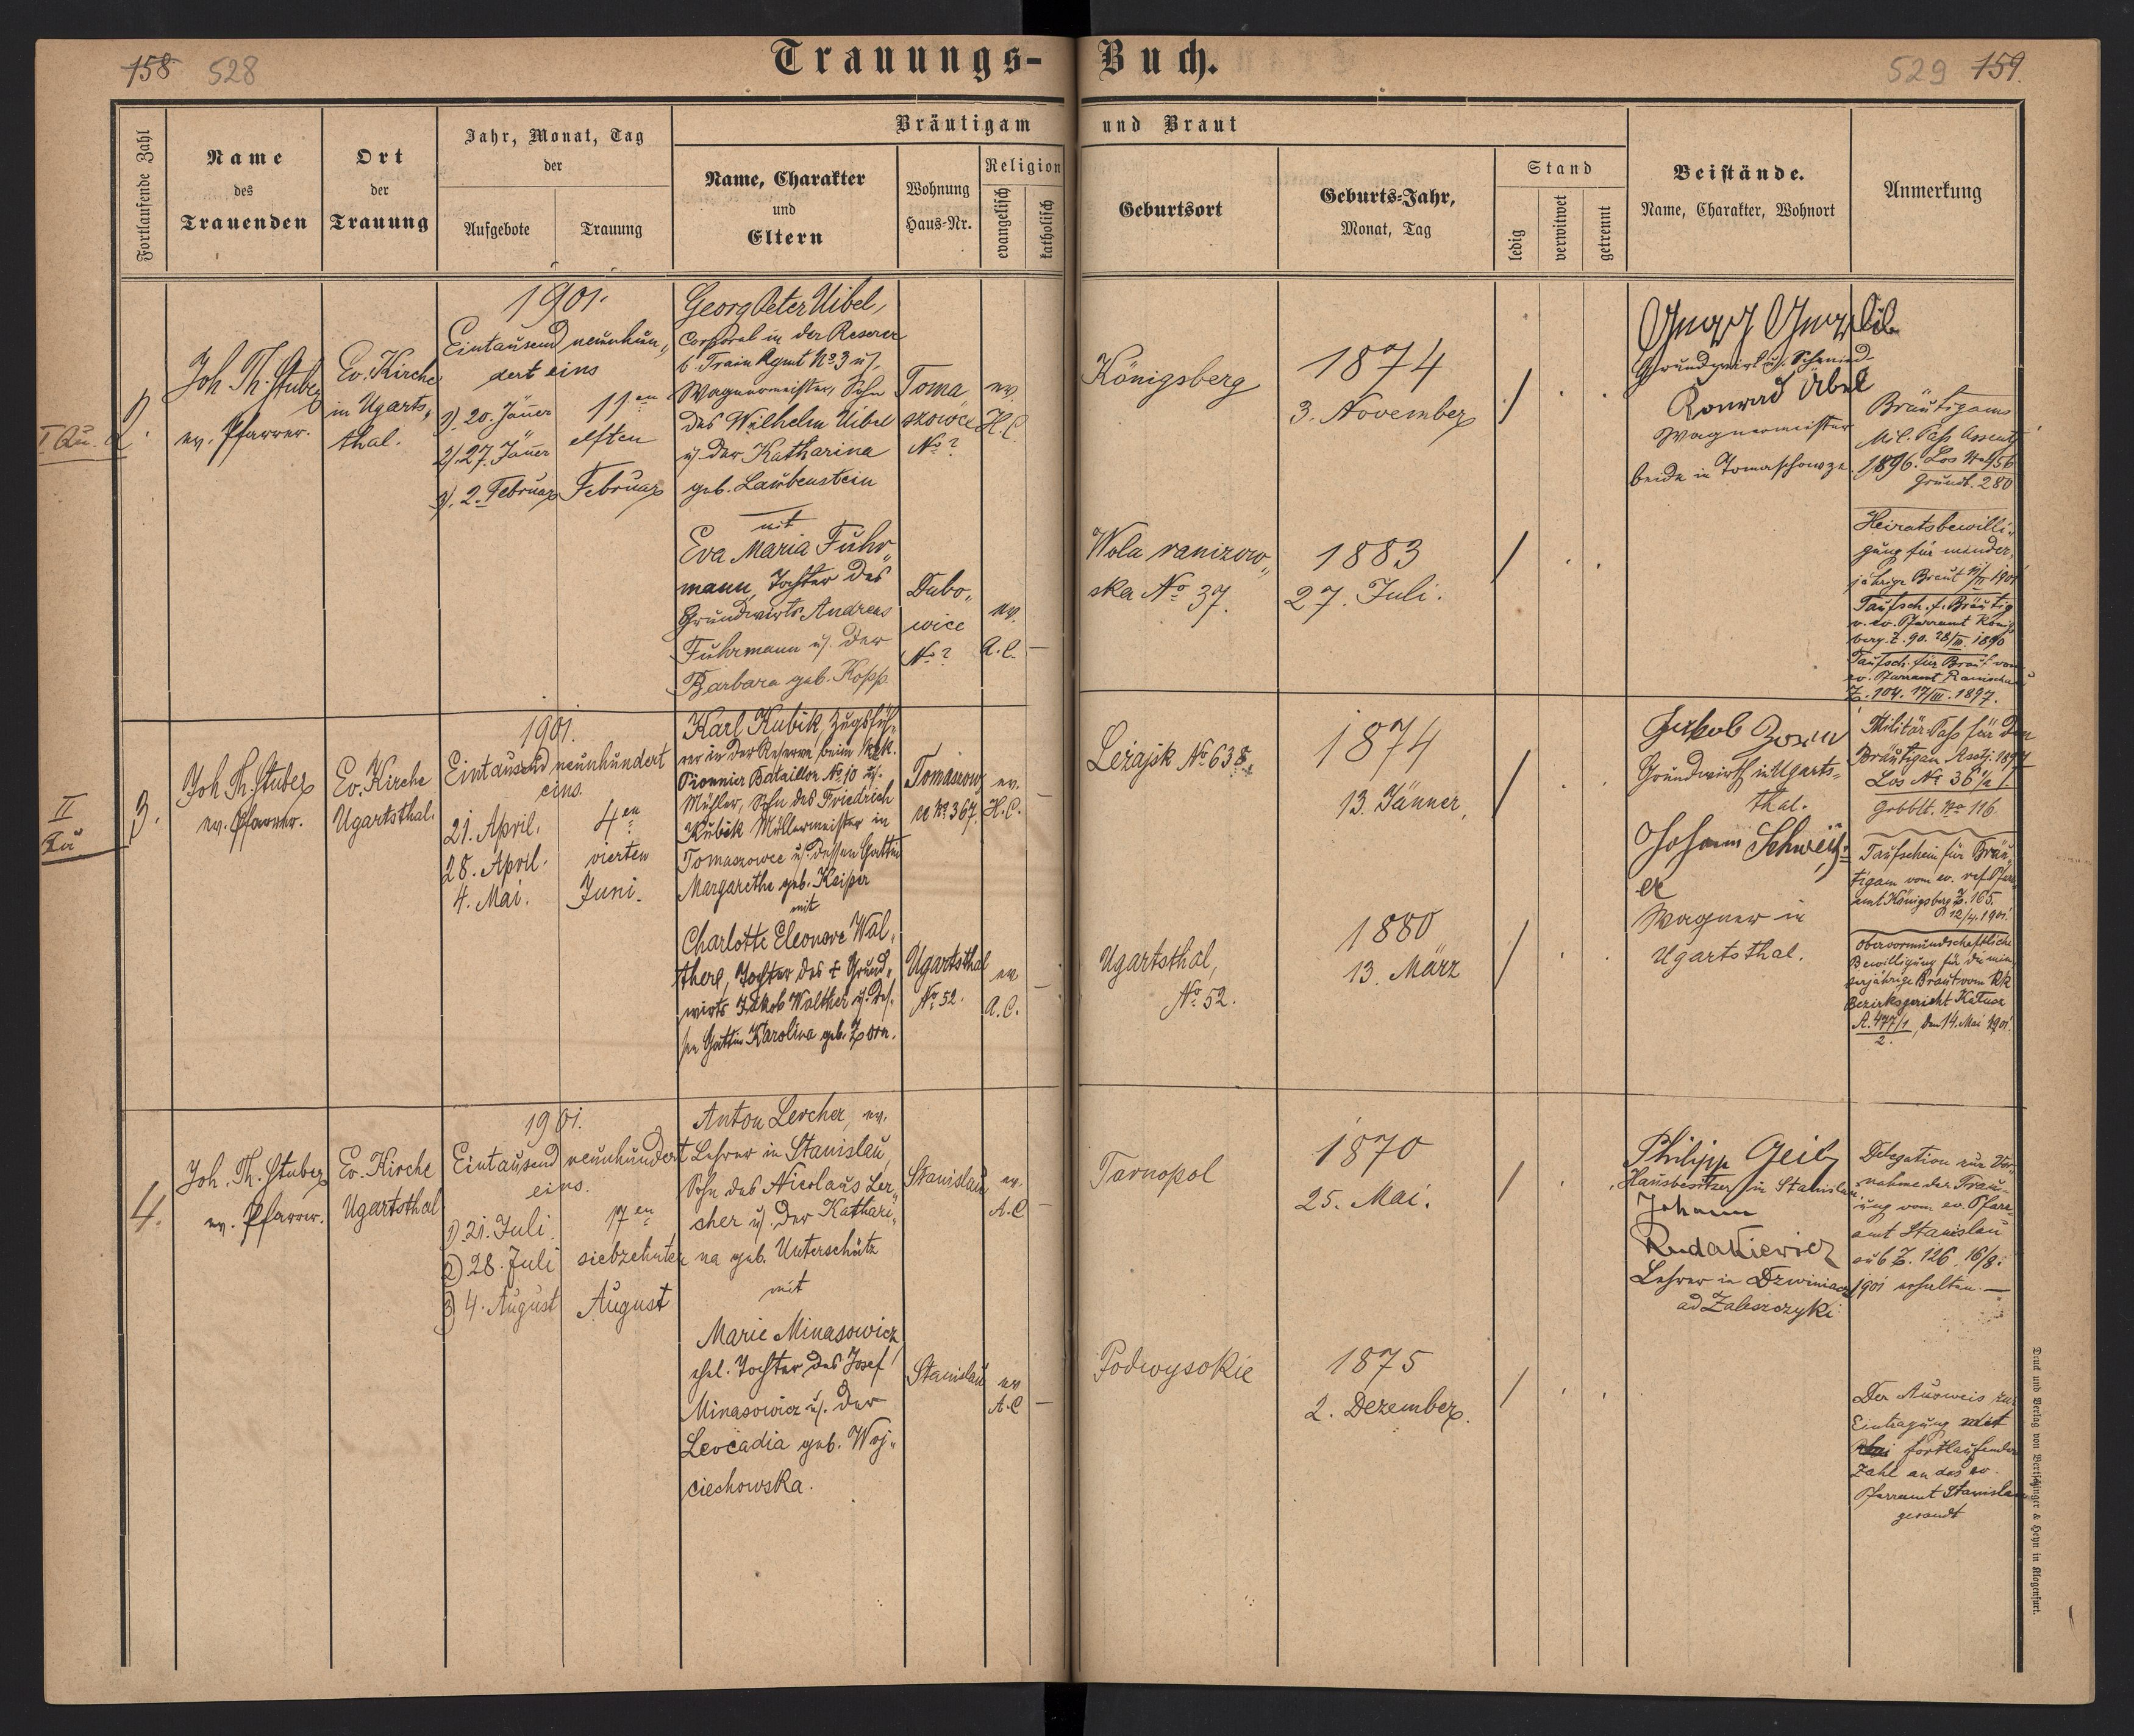 158 528
Trauungs-Buch.
529 159.
Fortlaufende Zahl
Name
des
Trauenden
Ort
der
Trauung
Jahr, Monat, Tag
der
Aufgebote
Trauung
Bräutigam und Braut
Name, Charakter
und
Eltern
Wohnung
Haus-Nr.
Religion
evangelisch
katholisch
Geburtsort
Geburts-Jahr,
Monat, Tag
Stand
ledig
verwitwet
getrennt
Beistände.
Name, Charakter, Wohnort
Anmerkung
I Qu.
2.
Joh. Th. Stuber
ev. Pfarrer.
Ev. Kirche
in Ugarts„
thal.
1901.
Eintausend neunhun„
dert eins
1). 20. Jäner
2). 27. Jäner
3). 2. Februar
11en
elften
Februar
Georg Peter Uibel,
Corporal in der Reserve
b. Train Rgmt No 3 u.
Wagnermeister, Sohn
des Wilhelm Uibel
u. der Katharina
geb. Laubenstein
mit
Eva Maria Fuhr„
mann, Tochter des
Grundwirts Andreas
Fuhrmann u. der
Barbara geb. Kopp
Toma„
szowce
No ?
ev.
H.C.
Dubo„
wice
No ?
ev.
A.C. —
Königsberg
1874
3. November
Wola ranizow„
ska No 37.
1883
27. Juli.
Grundwirt u. Schmied
Konrad Übel
Wagnermeister
beide in Tomaschowze
Bräutigams
Mil. Paß Assent
1896. Los No 456
Grundb. 280
Heiratsbewilli„
gung für minder„
jährige Braut
Taufsch. f. Bräutig
v. ev. Pfarramt Königs
berg. Z. 90. 28/III. 1890
Taufsch. für Braut vom
ev. Pfarramt Ranischau
Z. 104. 17/III. 1897.
II
Qu
3.
Joh. Th. Stuber
ev. Pfarrer.
Ev. Kirche
Ugartsthal.
1901.
Eintausend neunhundert
eins.
21. April.
28. April.
4. Mai.
4en
vierten
Juni.
Karl Kubik, Zugsfüh„
rer in der Reserve beim k.k.
Pionnier Bataillon No 10 u.
Müller, Sohn des Friedrich
Kubik Müllermeister in
Tomaszowce u. dessen Gattin
Margarethe geb. Kaiper
mit
Charlotte Eleonore Wal„
ther, Tochter des † Grund„
wirts Jakob Walther u. des„
sen Gattin Karolina geb. Zorn.
Tomaszow
ce No 367.
ev.
H.C.
Ugartsthal
No 52.
ev.
A.C.
Leżajsk No 638.
1874
13. Jänner,
Ugartsthal,
No 52.
1880
13. März
Jakob Zorn
Grundwirth in Ugarts„
thal.
Johann Schweitz„
er
Wagner in
Ugartsthal.
Militär-Paß für den
Bräutigam Asstj. 1894
Los No 36
Grbblt. No 116.
Taufschein für Bräu„
tigam vom ev. ref. Pfarr
amt Königsberg Z. 165.
12/4. 1901.
Obervormundschaftliche
Bewilligung für die min
derjährige Braut vom kk
Bezirksgericht Kałusz
A. 477/1, den 14. Mai 1901.
2.
4.
Joh. Th. Stuber
ev. Pfarrer.
Ev. Kirche
Ugartsthal
1901.
Eintausend neunhundert
eins.
1) 21. Juli
2) 28. Juli
3) 4. August
17en
siebzehnten
August
Anton Lercher, ev.
Lehrer in Stanislau,
Sohn des Nicolaus Ler„
cher u. der Kathari„
na geb. Unterschütz
mit
Marie Minasowicz
ehel. Tochter des Josef
Minasowicz u. der
Leocadia geb. Woj„
ciechowska.
Stanislau
ev.
A.C
Stanislau
ev
A.C —
Tarnopol
1870
25. Mai.
Podwysokie
1875
2. Dezember.
Philipp Geib
Hausbesitzer in Stanislau,
Johann
Rudakiewicz
Lehrer in Dzwiniacz
ad Zaleszczyki
Delegation zur Vor„
nahme der Trau„
ung vom ev. Pfarr„
amt Stanislau
sub Z. 126. 16/8.
1901 erhalten. —
Der Ausweis zur
Eintragung mit
fortlaufender
Zahl an das ev.
Pfarramt Stanislau
gesandt
Druck und Verlag von Bertschinger & Heyn in Klagenfurt.